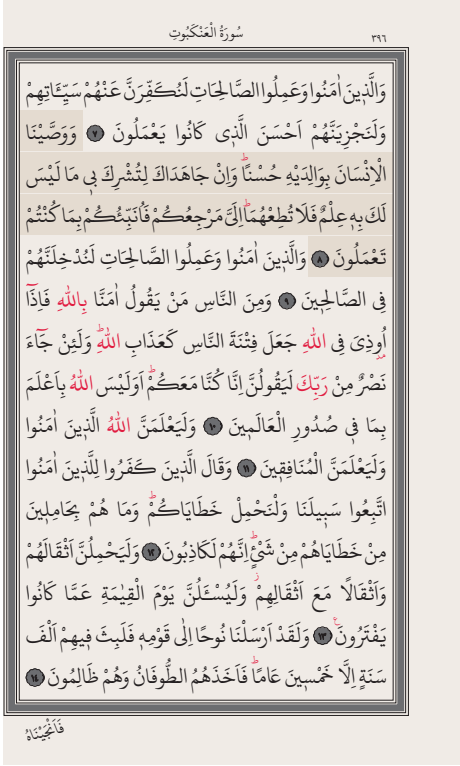 سُورَةُ الْعَنْكَبُوتِ
٣٩٦
وَالَّذٖينَ اٰمَنُوا وَعَمِلُوا الصَّالِحَاتِ لَنُكَفِّرَنَّ عَنْهُمْ سَيِّـَٔاتِهِمْ
وَلَنَجْزِيَنَّهُمْ اَحْسَنَ الَّذٖى كَانُوا يَعْمَلُونَ ﴿٧﴾ وَوَصَّيْنَا
الْاِنْسَانَ بِوَالِدَيْهِ حُسْنًاؕ وَاِنْ جَاهَدَاكَ لِتُشْرِكَ بٖى مَا لَيْسَ
لَكَ بِهٖ عِلْمٌ فَلَا تُطِعْهُمَاؕ اِلَىَّ مَرْجِعُكُمْ فَاُنَبِّئُكُمْ بِمَا كُنْتُمْ
تَعْمَلُونَ ﴿٨﴾ وَالَّذٖينَ اٰمَنُوا وَعَمِلُوا الصَّالِحَاتِ لَنُدْخِلَنَّهُمْ
فِى الصَّالِحٖينَ ﴿٩﴾ وَمِنَ النَّاسِ مَنْ يَقُولُ اٰمَنَّا بِاللّٰهِ فَاِذَٓا
اُو۫ذِىَ فِى اللّٰهِ جَعَلَ فِتْنَةَ النَّاسِ كَعَذَابِ اللّٰهِؕ وَلَئِنْ جَٓاءَ
نَصْرٌ مِنْ رَبِّكَ لَيَقُولُنَّ اِنَّا كُنَّا مَعَكُمْؕ اَوَلَيْسَ اللّٰهُ بِاَعْلَمَ
بِمَا فٖى صُدُورِ الْعَالَمٖينَ ﴿١٠﴾ وَلَيَعْلَمَنَّ اللّٰهُ الَّذٖينَ اٰمَنُوا
وَلَيَعْلَمَنَّ الْمُنَافِقٖينَ ﴿١١﴾ وَقَالَ الَّذٖينَ كَفَرُوا لِلَّذٖينَ اٰمَنُوا
اتَّبِعُوا سَبٖيلَنَا وَلْنَحْمِلْ خَطَايَاكُمْؕ وَمَا هُمْ بِحَامِلٖينَ
مِنْ خَطَايَاهُمْ مِنْ شَىْءٍؕ اِنَّهُمْ لَكَاذِبُونَ ﴿١٢﴾ وَلَيَحْمِلُنَّ اَثْقَالَهُمْ
وَاَثْقَالًا مَعَ اَثْقَالِهِمْؗ وَلَيُسْـَٔلُنَّ يَوْمَ الْقِيٰمَةِ عَمَّا كَانُوا
يَفْتَرُونَ ﴿١٣﴾ وَلَقَدْ اَرْسَلْنَا نُوحًا اِلٰى قَوْمِهٖ فَلَبِثَ فٖيهِمْ اَلْفَ
سَنَةٍ اِلَّا خَمْسٖينَ عَامًاؕ فَاَخَذَهُمُ الطُّوفَانُ وَهُمْ ظَالِمُونَ ﴿١٤﴾
فَاَنْجَيْنَاهُ